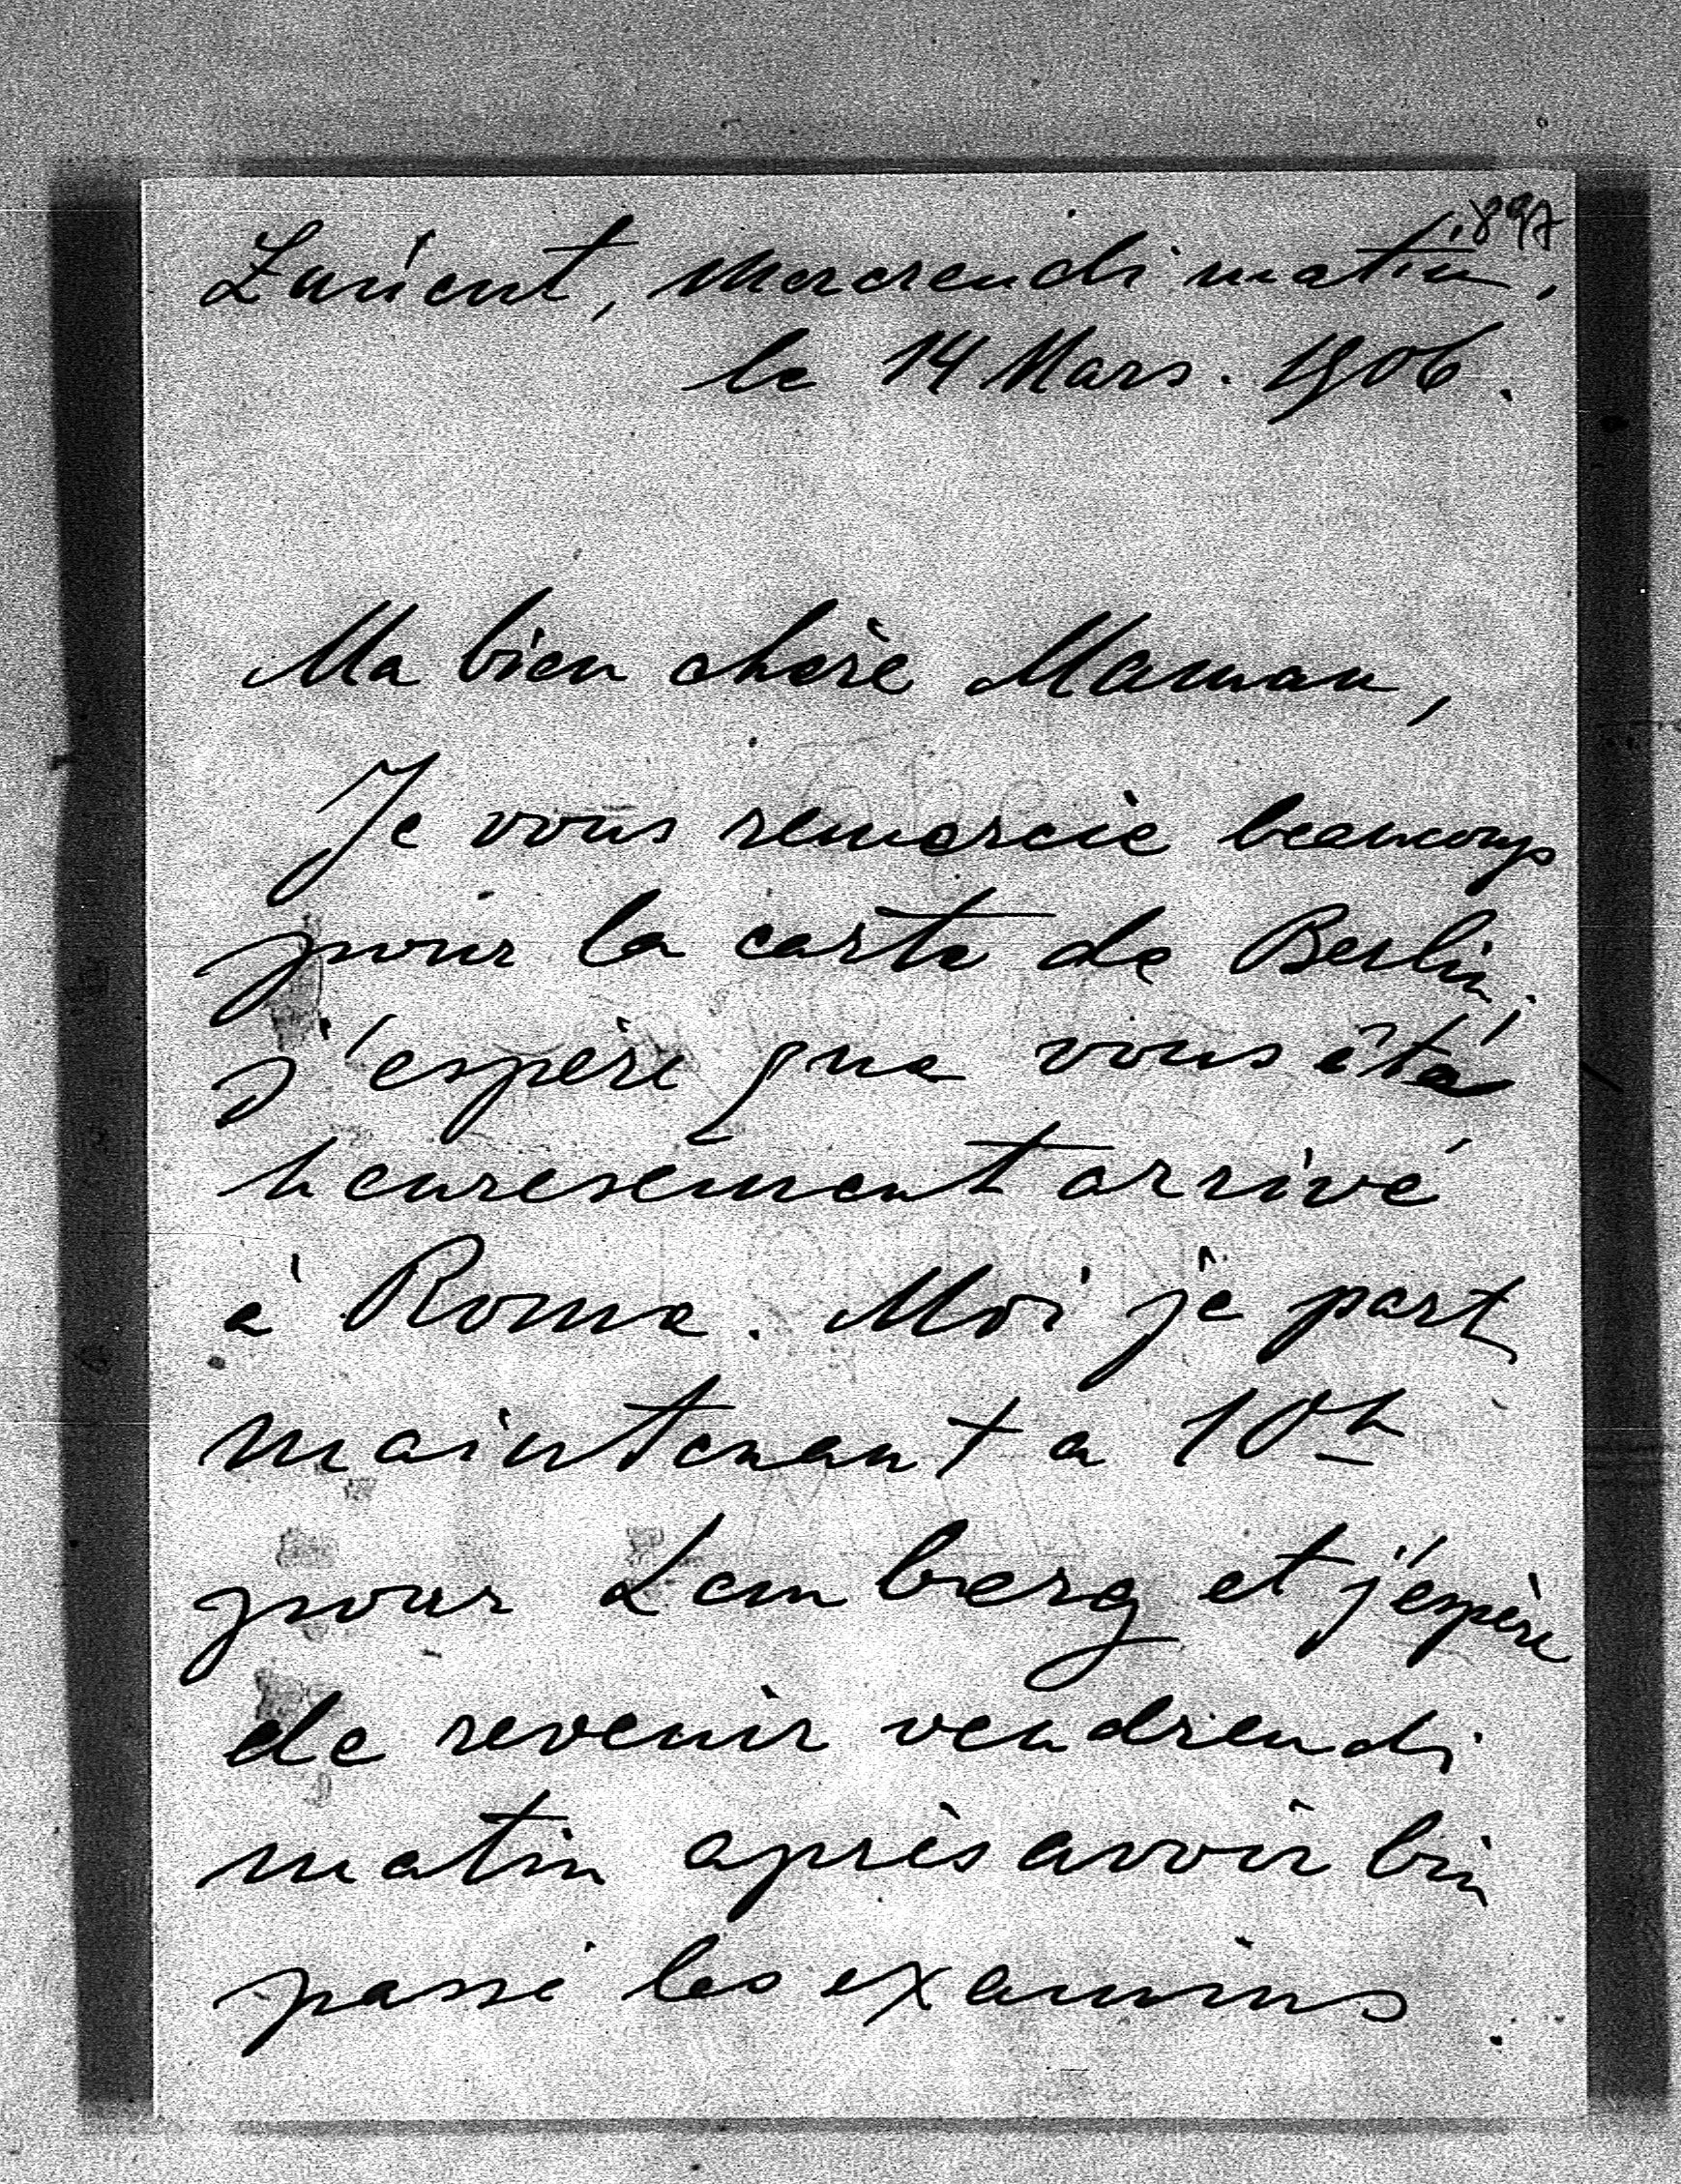 897
Łańcut, Mercrendi matin,
le 14 Mars. 1906.
Ma bien chère Maman,
Je vous remercie beaucoup
pour la carte de Berlin.
J'espère que vous été
heuresement arrivé
à Rome. Moi je part
maintenant a 10h
pour Lemberg et j'éspère
de revenir vendrendi
matin après avoir bin
passé les examins.